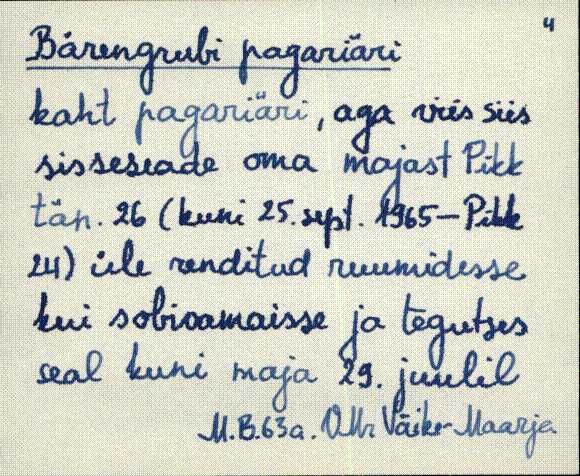 4
Bärengrubi pagariäri
kaht pagariäri, aga viis siis
sisseseade oma majast Pikk
tän. 26 (kuni 25. sept. 1965 – Pikk
24) üle renditud ruumidesse
kui sobivamaisse ja tegutses
seal kuni maja 29. juulil
M.B. 63a. Väike-Maarja